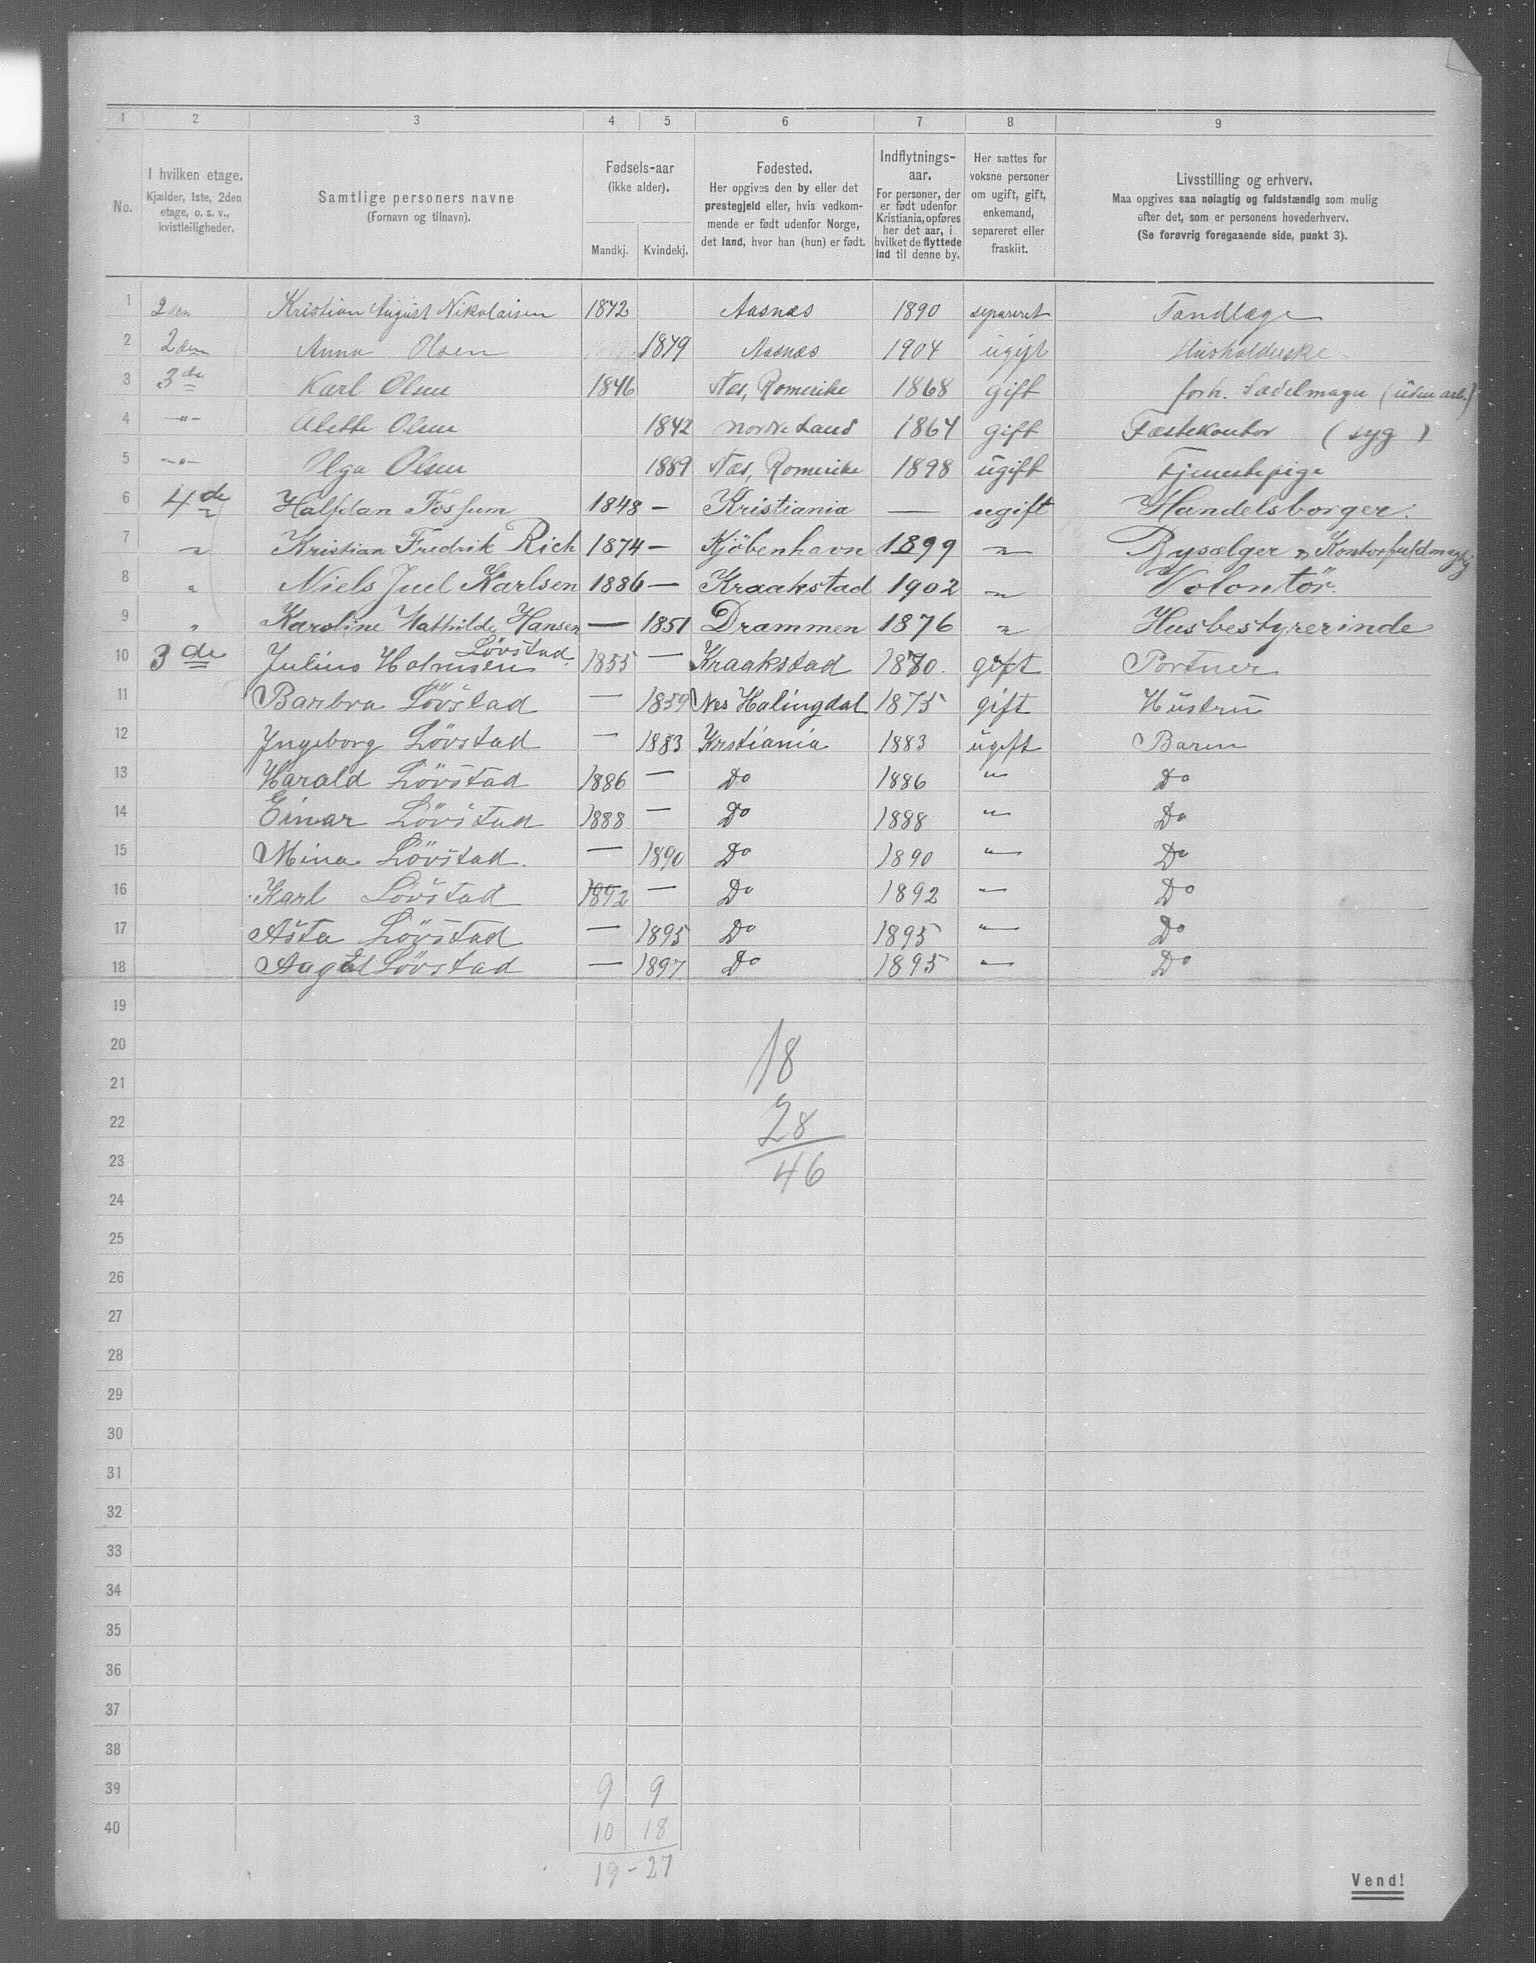 1 2 3 4 5 6 7 8 9
No. I hvilken etage. Kjælder, 1ste, 2den etage, o. s. v., kvistleiligheder. Samtlige personers navne (Fornavn og tilnavn). Fødsels-aar (ikke alder). Mandkj. Kvindekj. Fødested. Her opgives den by eller det prestegjeld eller, hvis vedkommende er født udenfor Norge, det land, hvor han (hun) er født. Indflytnings-aar. For personer, der er født udenfor Kristiania, opføres her det aar, i hvilket de flyttede ind til denne by. Her sættes for voksne personer om ugift, gift, enkemand, separeret eller fraskilt. Livsstilling og erhverv. Maa opgives saa nøiagtig og fuldstændig som mulig efter det, som er personens hovederhverv. (Se forøvrig foregaaende side, punkt 3).
1 2den Kristian August Nikolaisen 1872 Aasnæs 1890 separeret Tandlæge
2 2den Anna Olsen 1879 Aasnæs 1904 ugift Husholderske
3 3de Karl Olsen 1846 Næs, Romerike 1868 gift forh. Sadelmager (uden arb.)
4 -"- Alette Olsen 1842 Nordre Land 1864 gift Fæstekontor (syg)
5 -"- Olga Olsen 1889 Næs, Romerike 1898 ugift Tjenestepige
6 4de Halfdan Fossum 1848 — Kristiania — ugift Handelsborger.
7 " Kristian Fredrik Rich 1874 — Kjöbenhavn 1899 " Rysælger & Kontorfuldmægtig
8 " Niels Juel Karlsen 1886 — Kraakstad 1902 " Volontör.
9 " Karoline Mathilde Hansen — 1851 Drammen 1876 " Husbestyrerinde
10 3de Julius Holmsen Lövstad 1855 — Kraakstad 1880. gift Portner
11 Barbra Lövstad — 1859 Nes Halingdal 1875 gift Hustru
12 Ingeborg Lövstad — 1883 Krstiania 1883 ugift Baren
13 Harald Lövstad 1886 — Do 1886 " Do
14 Einar Lövstad 1888 — Do 1888 " Do
15 Mina Lövstad. — 1890 Do 1890 " Do
16 Karl Lövstad 1892 — Do 1892 " Do
17 Asta Lövstad — 1895 Do 1895 " Do
18 Lövstad — 1897 Do 1895 " Do
19
20 18
21
22 28
23 46
24
25
26
27
28
29
30
31
32
33
34
35
36
37
38
39 9 9
40 10 18
19 - 27
Vend!